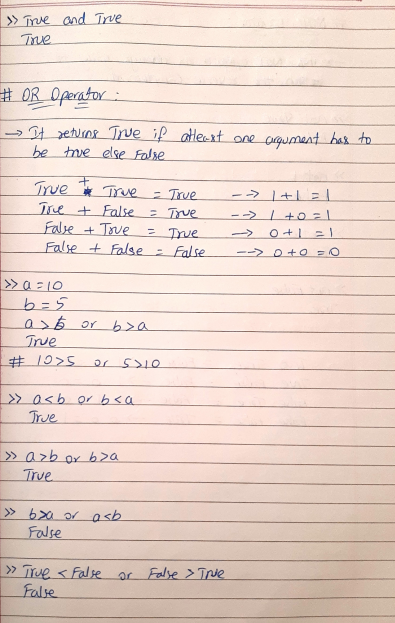 >> True and True
True
# OR Operator :
→ It returns True if atleast one argument has to
be true else False
True + True = True --> 1+1=1
True + False = True --> 1+0=1
False + True = True --> 0+1=1
False + False = False --> 0+0=0
>> a=10
b=5
a>b or b>a
True
# 10>5 or 5>10
>> a<b or b<a
True
>> a>b or b>a
True
>> b>a or a<b
False
>> True < False or False > True
False